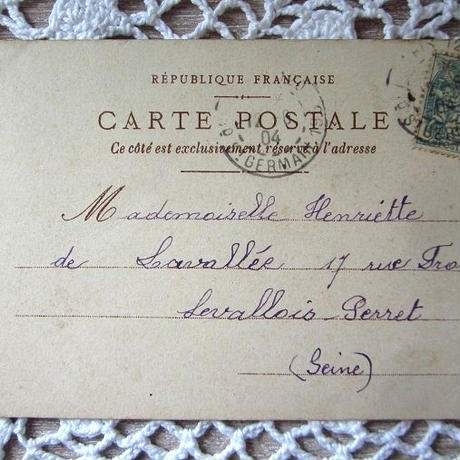 RÉPUBLIQUE FRANÇAISE
CARTE POSTALE
Ce côté est exclusivement réservé à l'adresse
04
GERMAIN
Mademoiselle Henriette
de Lavallée 17 rue
Levallois-Perret
(Seine)